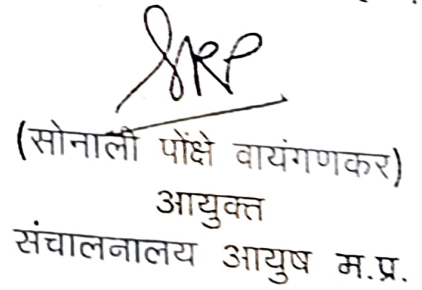 (सोनाली पोंक्षे वायंगणकर)
आयुक्त
संचालनालय आयुष म.प्र.